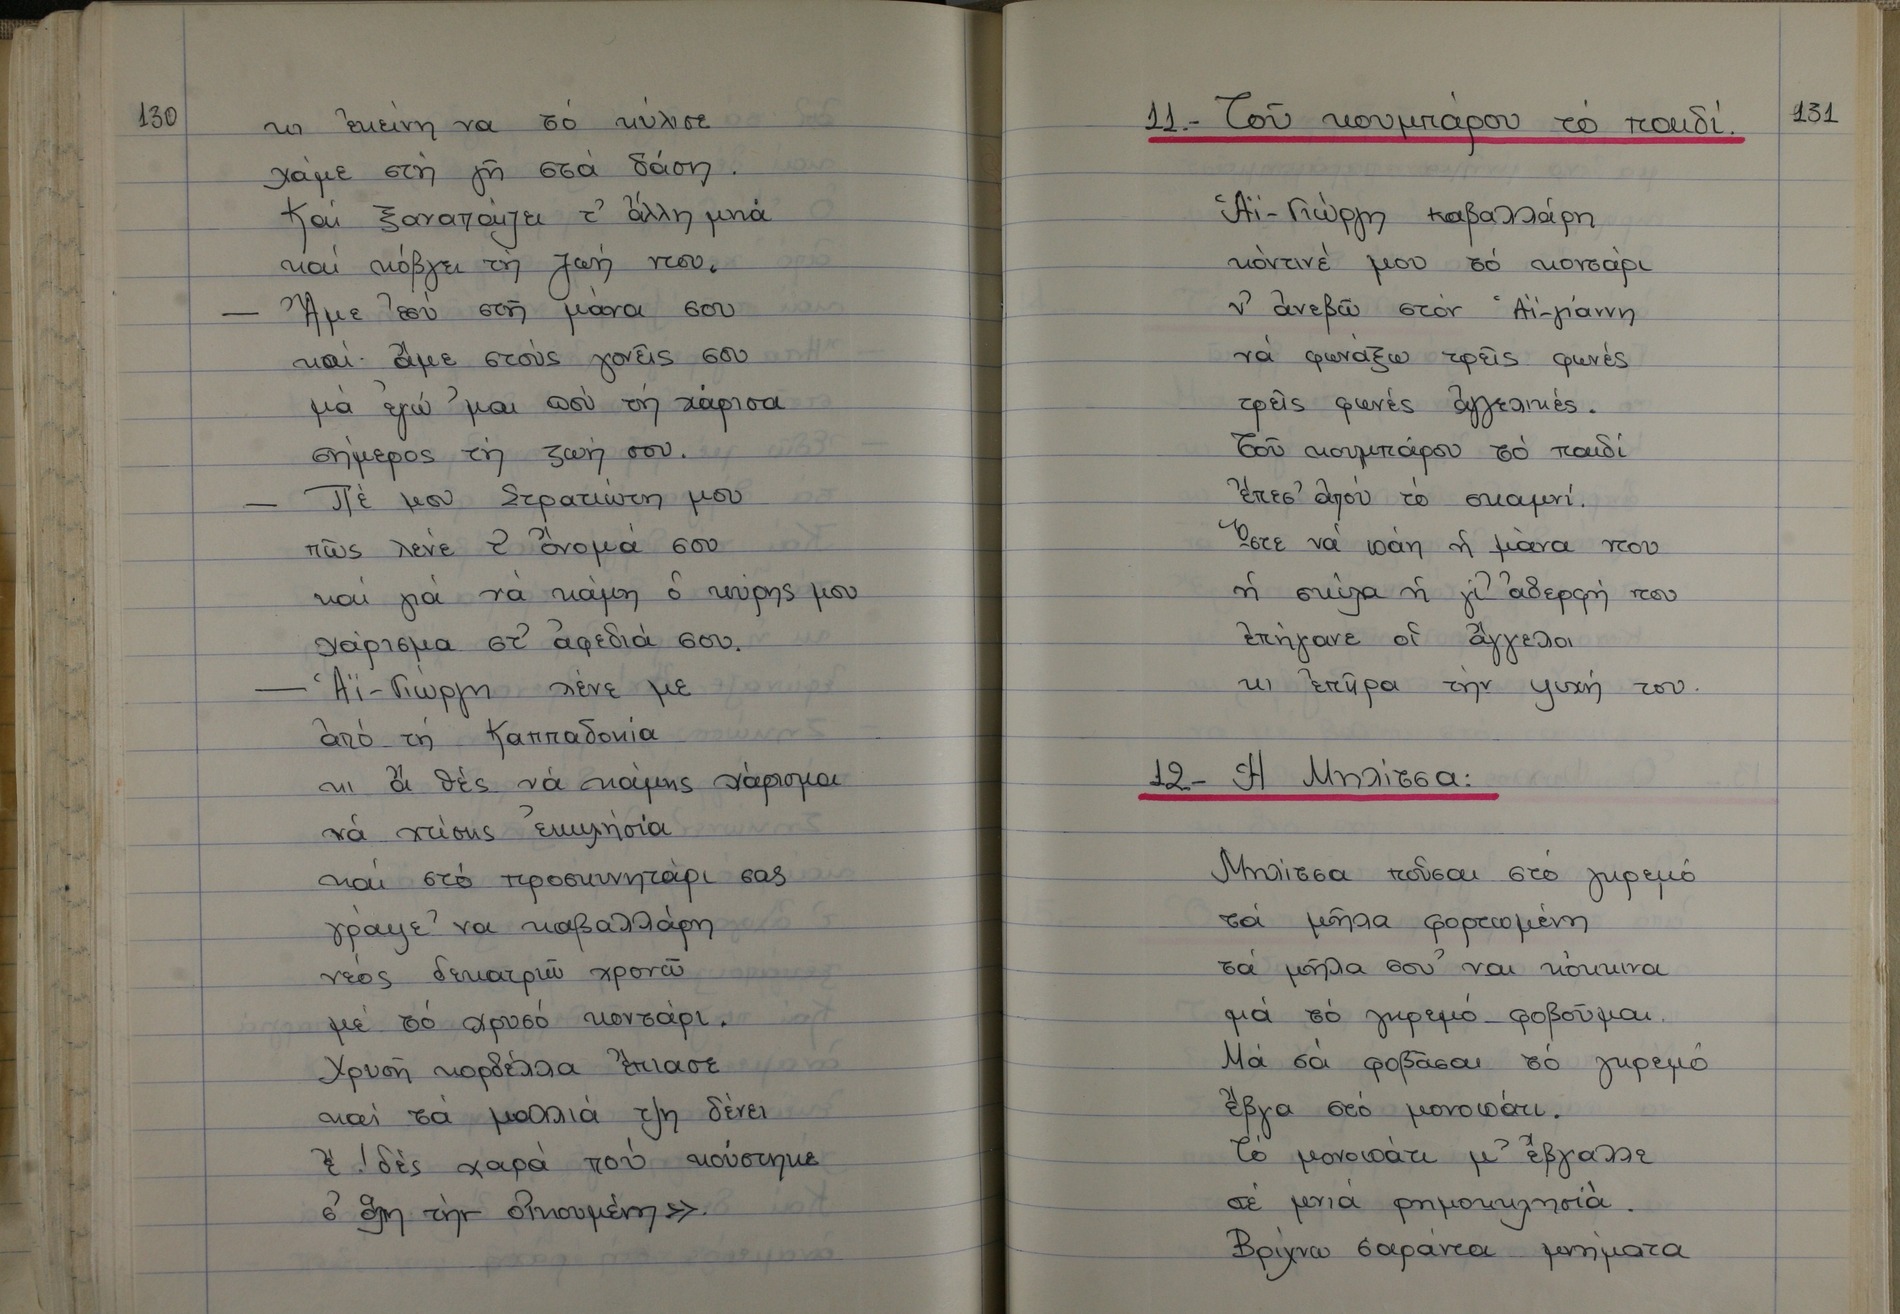 130
κι ἐκείνη να τό κύλισε
χάμε στή γῆ στά δάση.
Καί ξαναπαίζει τ' ἄλλη μπιά
καί κόβγει τή ζωή ντου.
— Ἄμε 'σύ στή μάνα σου
καί ἄμε στούς γονεῖς σου
μά ἐγώ 'μαι ποὺ τή χάρισα
σήμερος τή ζωή σου.
— Πέ μου Στρατιώτη μου
πῶς λένε τ' ὄνομά σου
καί γιά νά κάμη ὁ κύρης μου
χάρισμα στ' ἀφεδιά σου.
— Ἁϊ-Γιώργη λένε με
ἀπό τή Καππαδοκία
κι ἄ θές νά κάμης χάρισμα
νά χτίσης ἐκκλησία
καί στό προσκυνητάρι σας
γράψε 'να καβαλλάρη
νέος δεκατριῶ χρονῶ
μέ τό χρυσό κοντάρι.
Χρυσῆ κορδέλλα ἔπιασε
καί τά μαλλιά τζη δένει
ἔ! δές χαρά πού κούστηκε
σ' ὅλη τήν οἰκουμένη».
131
11.- Τοῦ κουμπάρου τό παιδί.
Ἁϊ-Γιώργη καβαλλάρη
κόντινέ μου τό κοντάρι
ν' ἀνεβῶ στόν Ἁϊ-γιάννη
νά φωνάξω τρεῖς φωνές
τρεῖς φωνές ἀγγελικές.
Τοῦ κουμπάρου τό παιδί
ἔπεσ' ἀπού τό σκαμνί.
Ὥστε νά πάη ἡ μάνα ντου
ἡ σκύλα ἡ γι' ἀδερφή του
ἐπήγανε οἱ ἄγγελοι
κι ἐπῆρα τήν ψυχή του.
12.- Ἡ Μηλίτσα:
Μηλίτσα ποὖσαι στό γκρεμό
τά μῆλα φορτωμένη
τά μῆλα σου 'ναι κόκκινα
μά τό γκρεμό φοβοῦμαι.
Μά σά φοβᾶσαι τό γκρεμό
ἔβγα στό μονοπάτι.
Τό μονοπάτι μ' ἔβγαλλε
σέ μνιά ρημοκκλησιά.
Βρίχνω σαράντα μνήματα